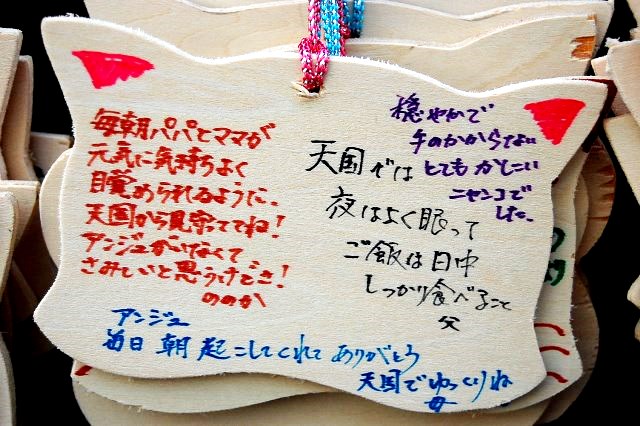 毎朝パパとママが
元気に気持ちよく
目覚められるように、
天国から見守ててね!
アンジュがいなくて
さみしいと思うけどさ!
ののか
穏やかで
手のかからない
とてもかしこい
ニャンコで
した。
天国では
夜はよく眠って
ご飯は日中
しっかり食べること
父
アンジュ
毎日朝起こしてくれてありがとう
天国でゆっくりね
母